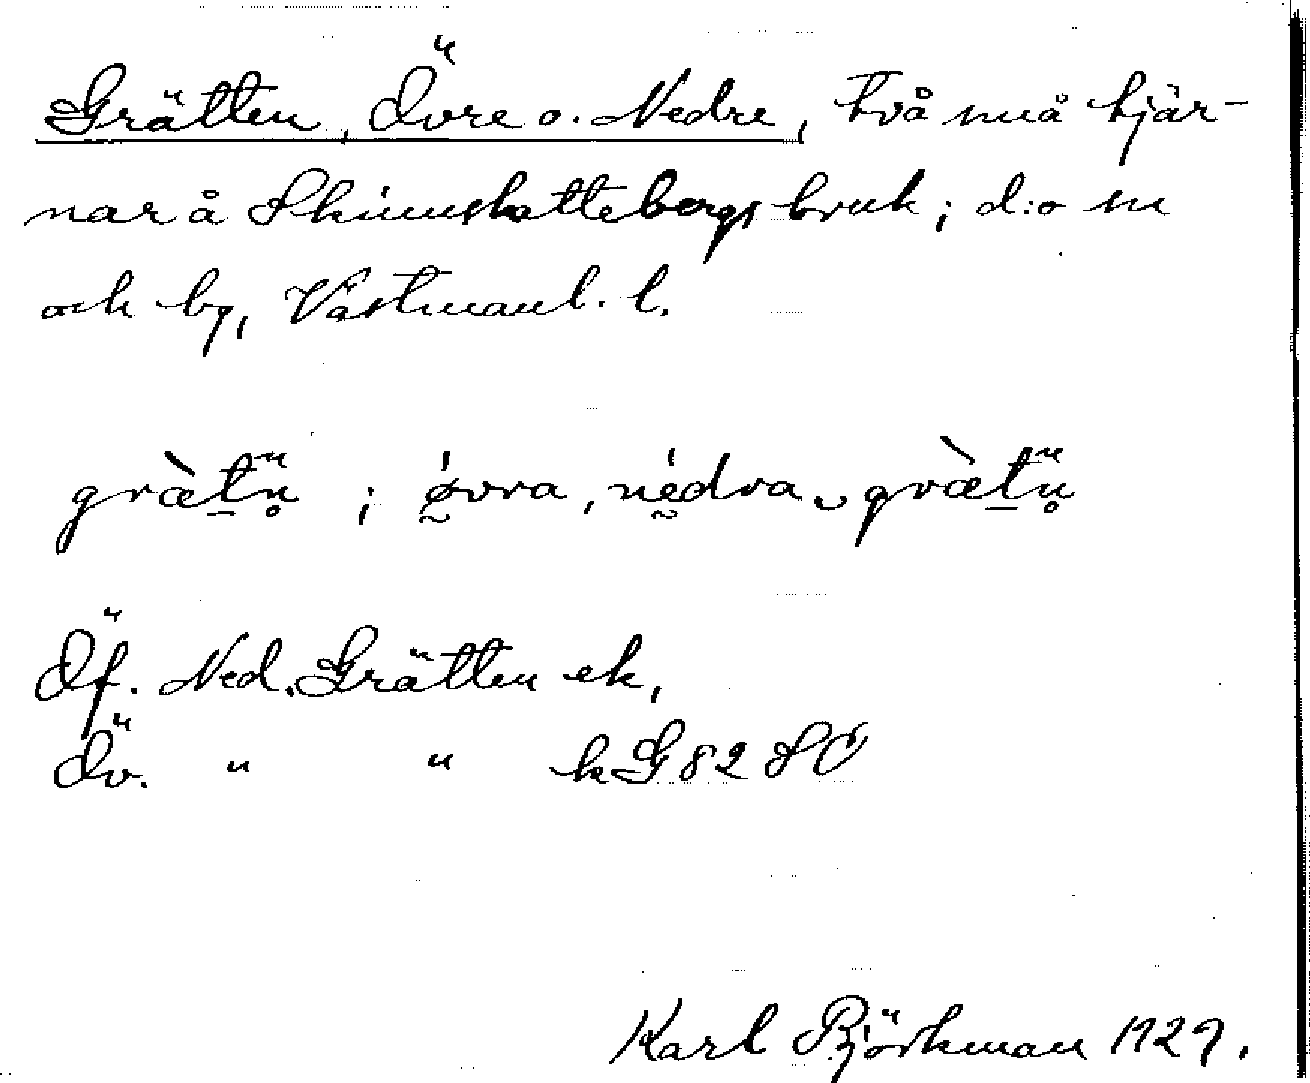 Grätten, Övre o. Nedre, två små tjär-
nar å Skinnskattebergs bruk; d:o sn
och by, Västmanl. l.
græ̀tn̥ ; ǿvra, nédra ‿ græ̀tn̥
Öf. Ned. Grätten ek,
Öv. " " k G 82 SO
Karl Björkman 1929.